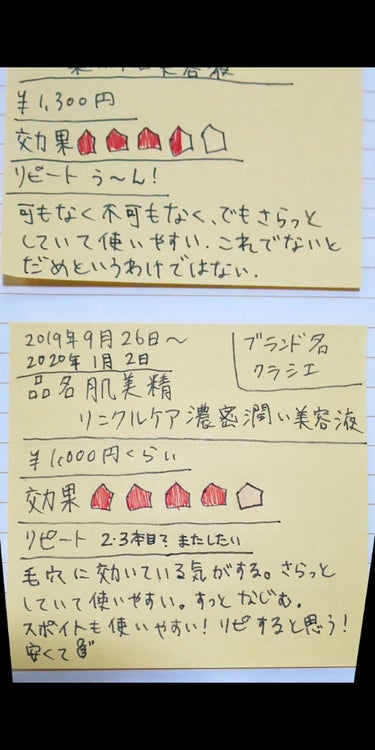 美容液
¥1,300円
効果
リピート う〜ん!
可もなく不可もなく、でもさらっと
していて使いやすい。これでないと
だめというわけではない。
2019年9月26日〜
2020年1月2日
ブランド名
クラシエ
品名 肌美精
リンクルケア濃密潤い美容液
¥1,000円くらい
効果
リピート 2・3本目?またしたい
毛穴に効いている気がする。さらっと
していて使いやすい。すっとなじむ。
スポイトも使いやすい!リピすると思う!
安くて